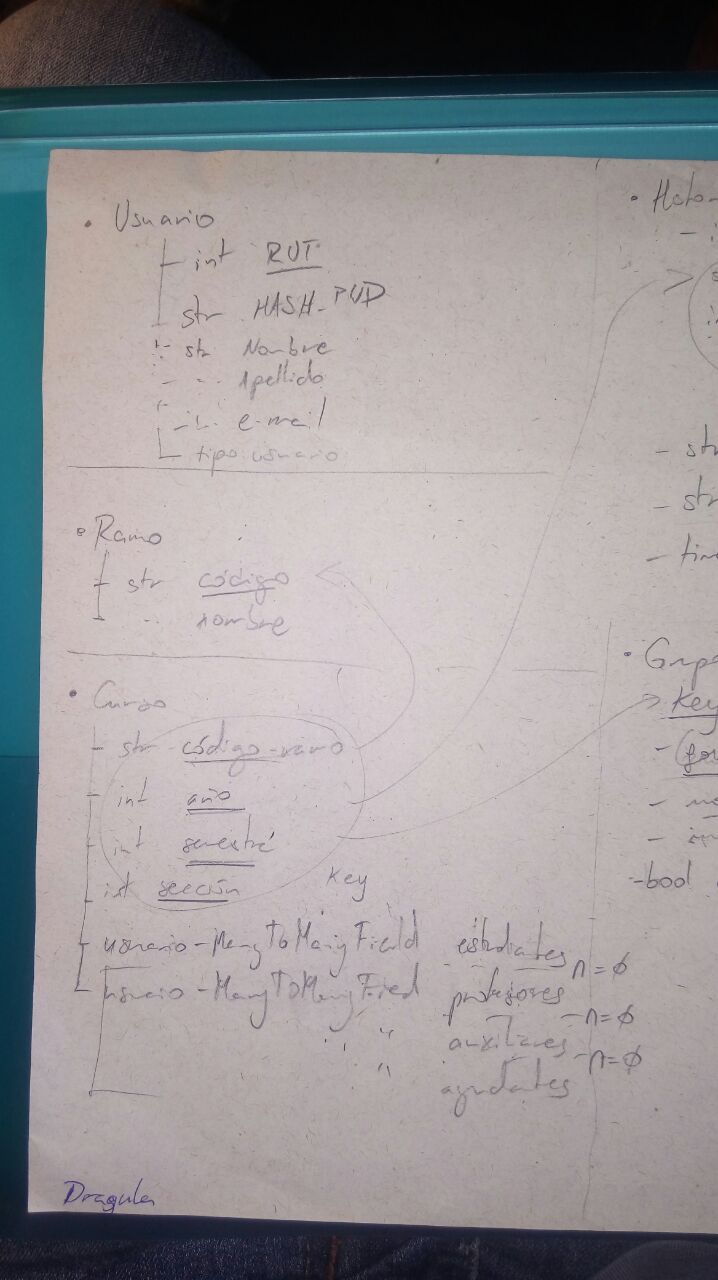 • Usuario
- int RUT
str HASH_PWD
- str Nombre
- " Apellido
- " e-mail
- tipo usuario
• Ramo
- str código
- " nombre
• Curso
- str código-ramo
- int año
- int semestre
- int sección Key
usuario - ManyToManyField estudiantes
usuario - ManyToManyFied profesores n=∅
" " auxiliares -n=∅
" ayudantes -n=∅
Dragula
-
- str
- str
- tim
• Grupo
Key
-
-
-
-bool